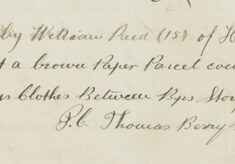 by William Reed (158) of H
t a brown Paper Parcel con
s Clothes Between Bps Stor
P.C. Thomas Berry